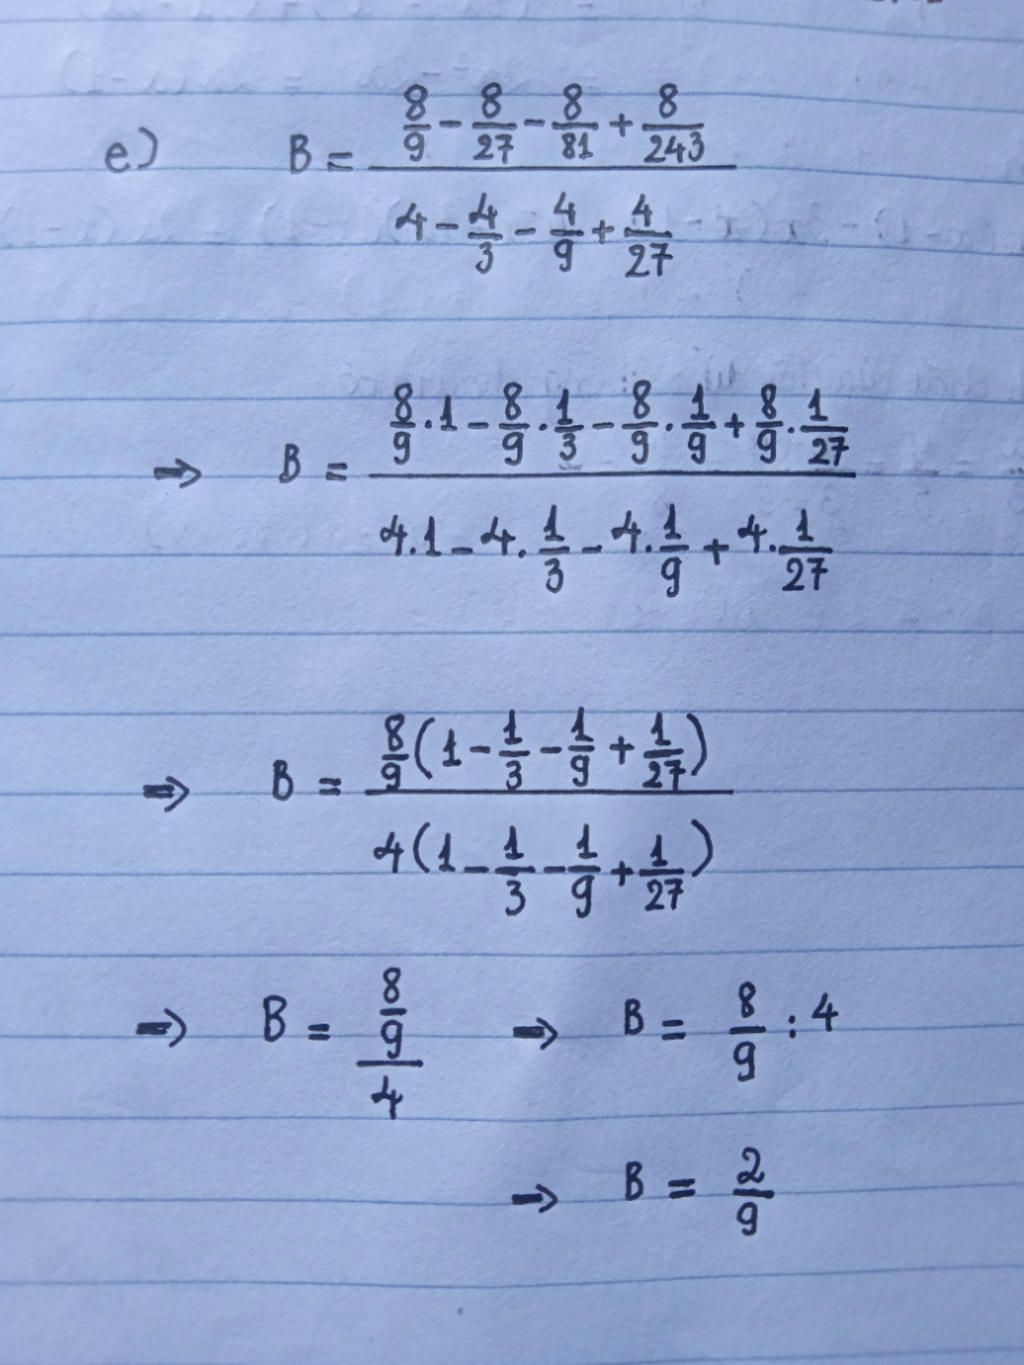 e) B = (8/9 - 8/27 - 8/81 + 8/243) / (4 - 4/3 - 4/9 + 4/27)
⇒ B = (8/9 . 1 - 8/9 . 1/3 - 8/9 . 1/9 + 8/9 . 1/27) / (4.1 - 4. 1/3 - 4. 1/9 + 4. 1/27)
⇒ B = 8/9 (1 - 1/3 - 1/9 + 1/27) / 4 (1 - 1/3 - 1/9 + 1/27)
⇒ B = 8/9 / 4 ⇒ B = 8/9 : 4
⇒ B = 2/9